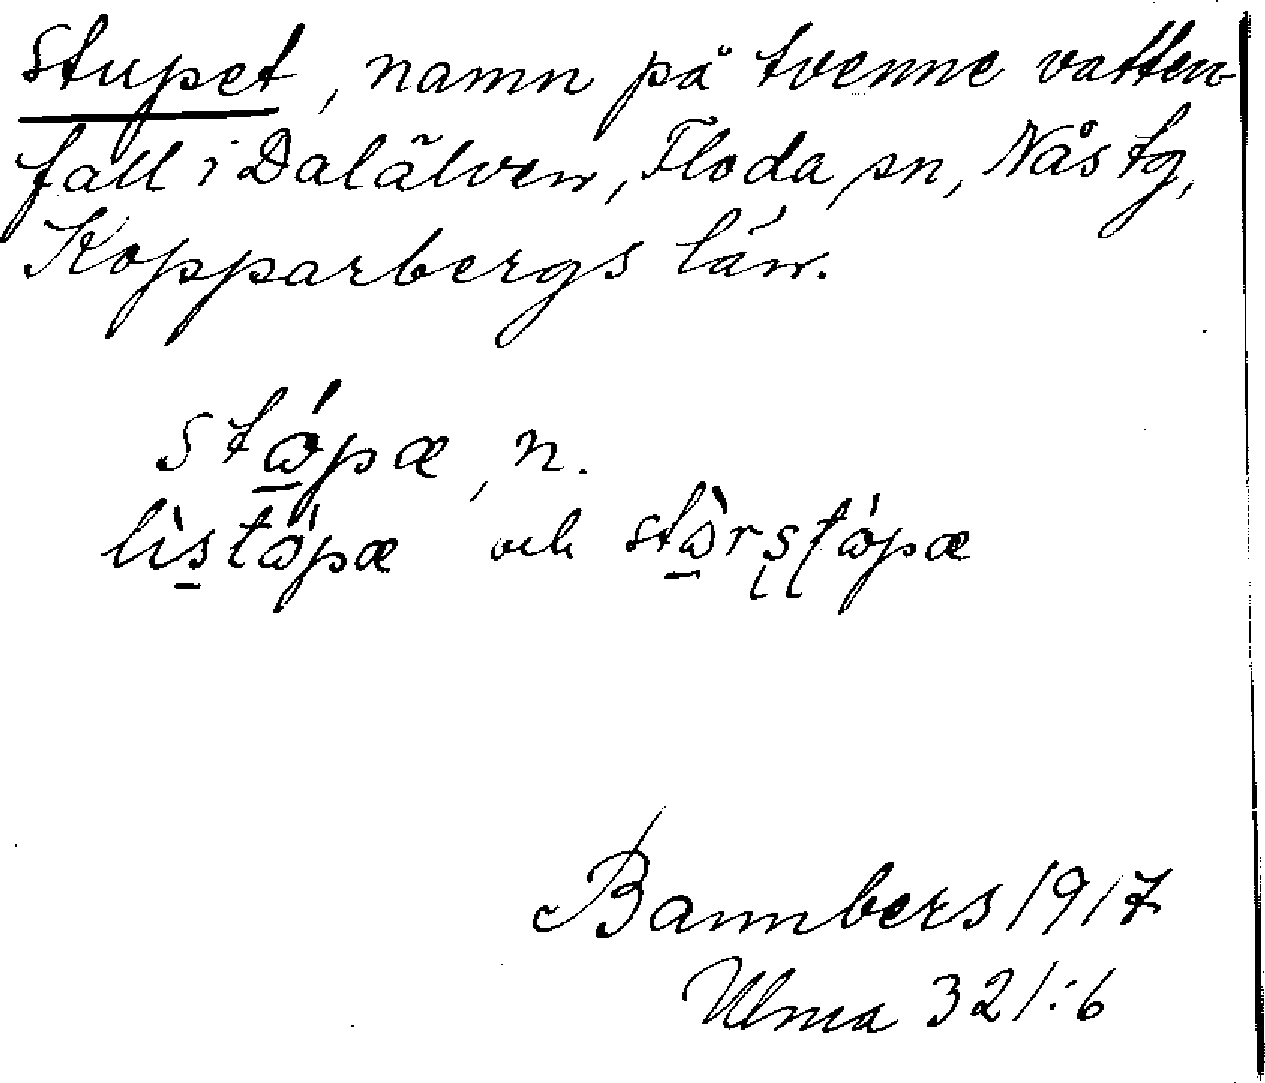 Stupet, namn på tvenne vatten-
fall i Dalälven, Floda sn, Nås tg,
Kopparbergs län.
stώ̲pæ, n.
lìs̲tώpæ och stὼ̲rʂʈώpæ
Bannbers 1917
Ulma 321:6